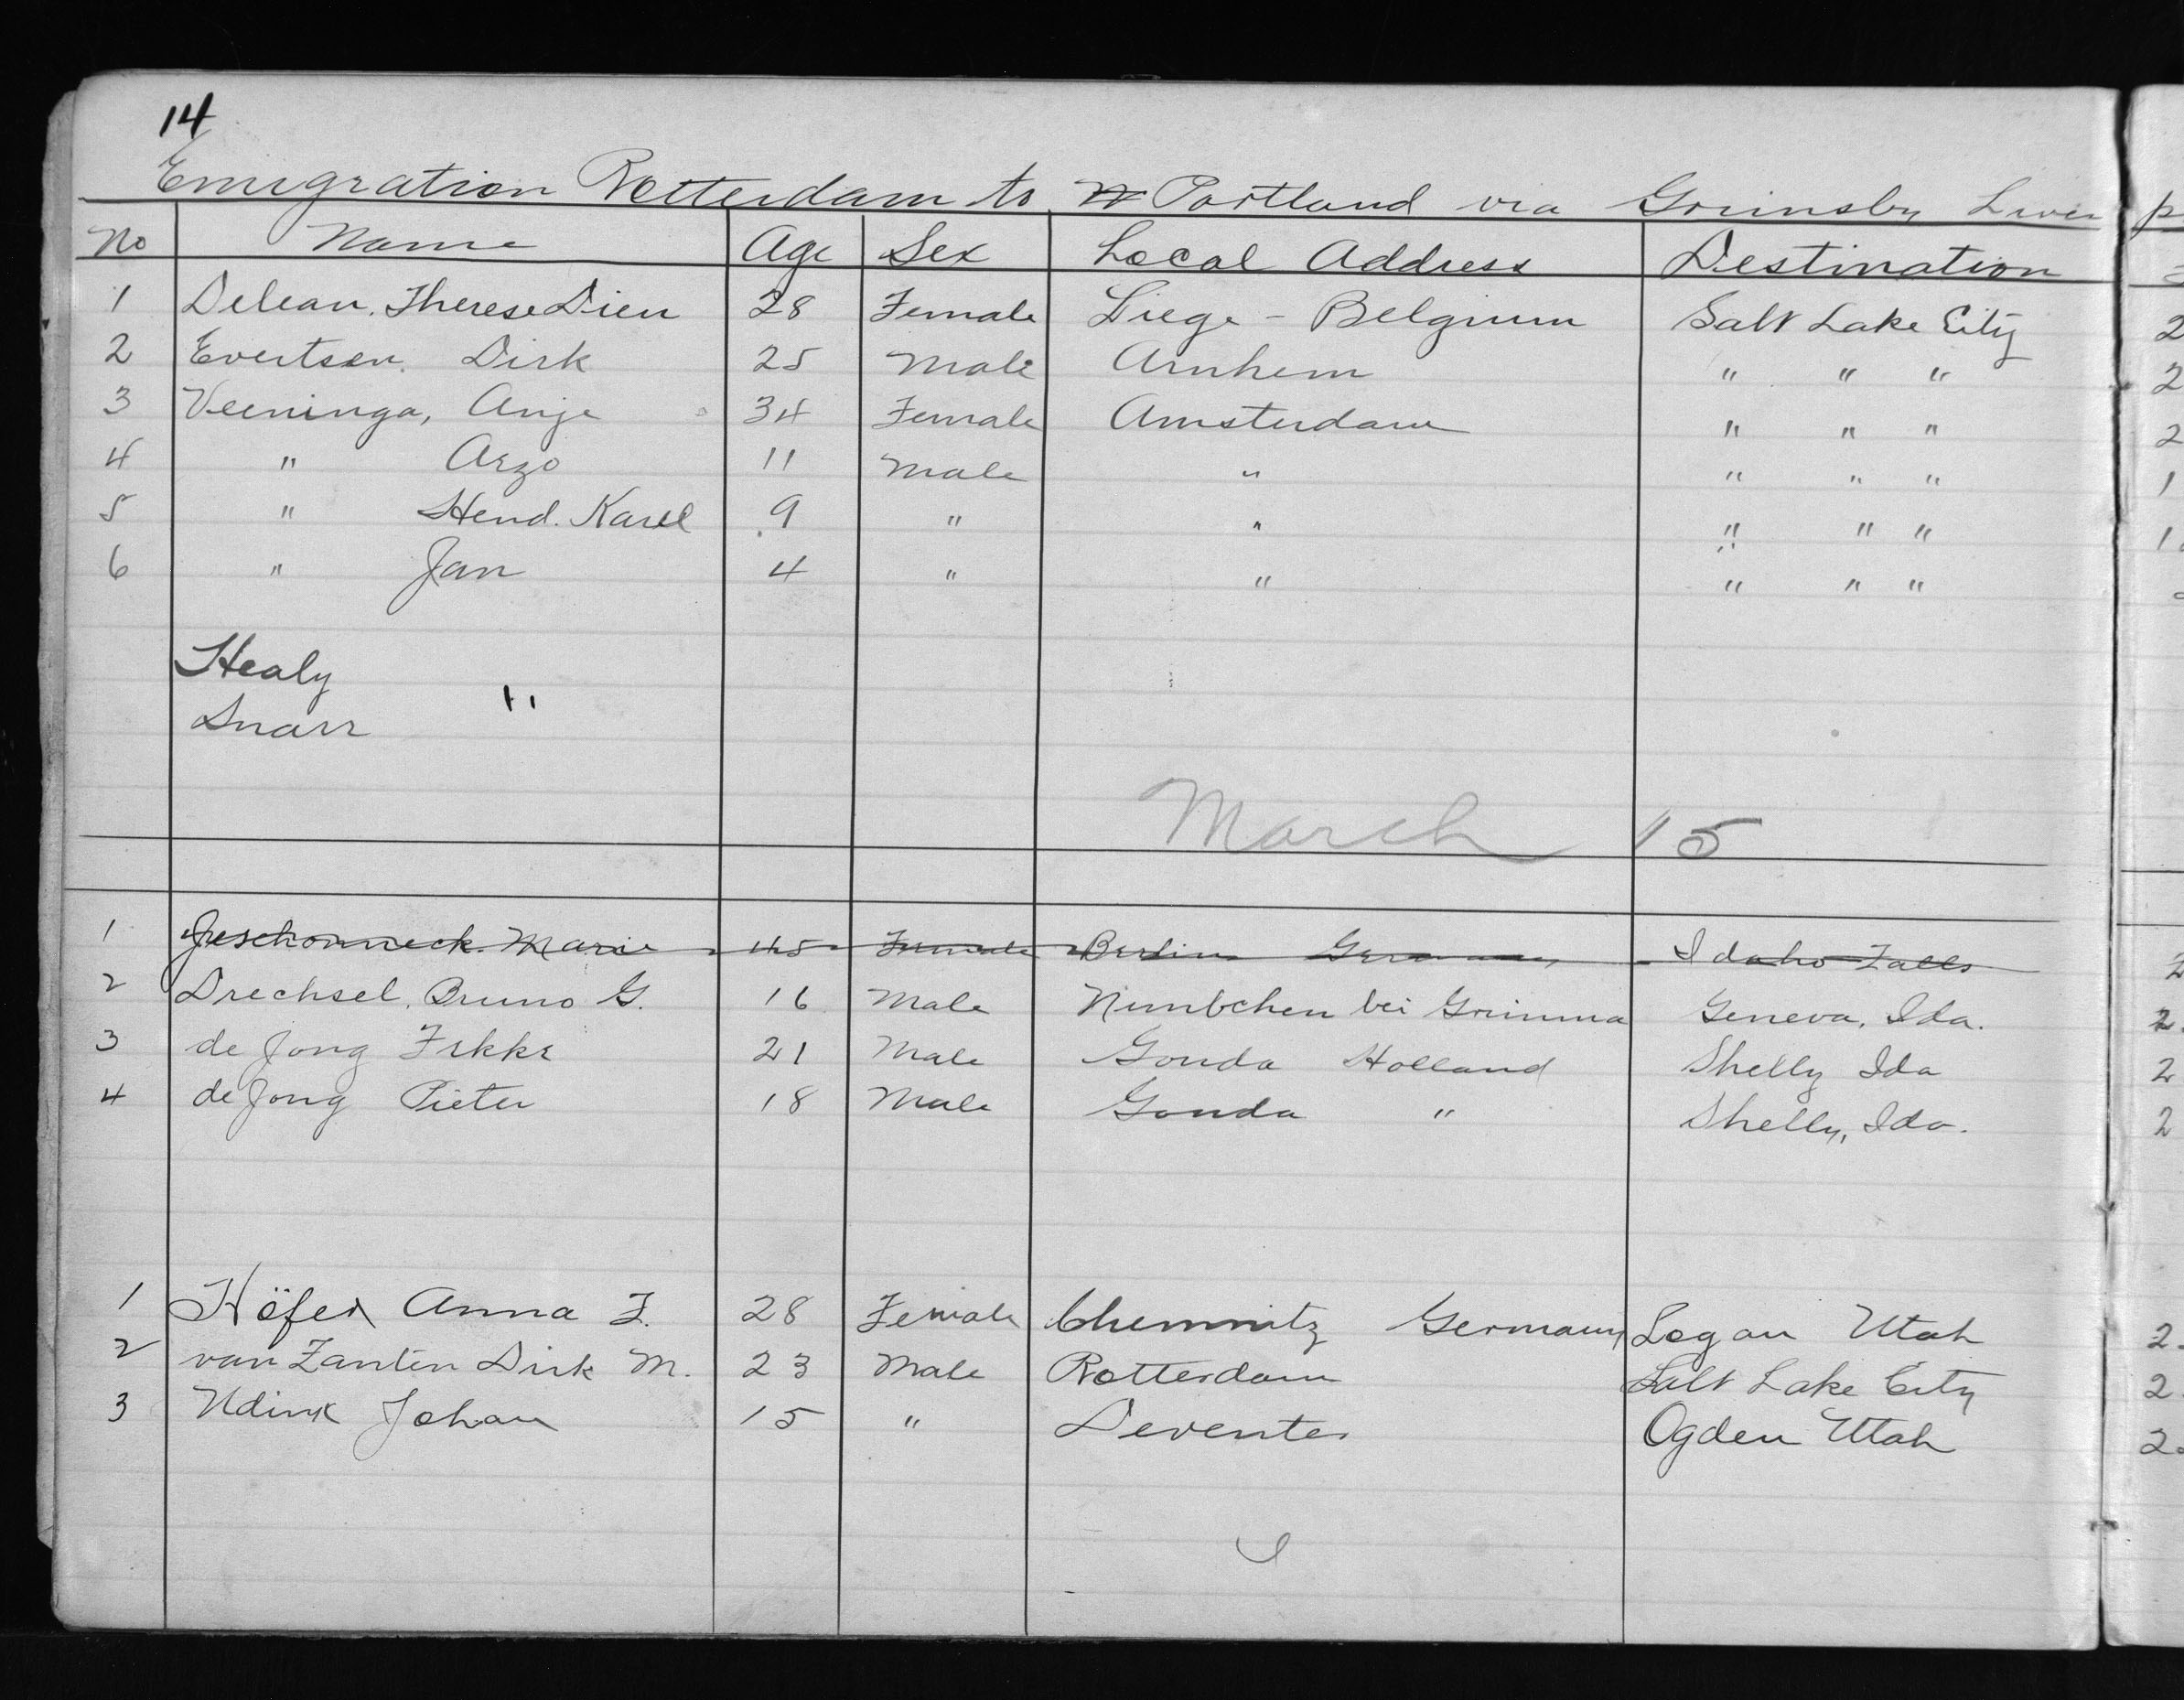 14
Emigration Rotterdam to N Portland via Grimsby Liver
No Name Age Sex Local Address Destination
1 Delean, Therese Dieu 28 Female Liege - Belgium Salt Lake City
2 Evertsen, Dirk 25 Male Arnhem " " "
3 Veeninga, Anje 34 Female Amsterdam " " "
4 " Arzo 11 Male " " " "
5 " Hend. Karel 9 " " " " "
6 " Jan 4 " " " " "
Healy
Snarr "
March 15
1 Jeschonneck Marie 45 Female Berlin Germany Idaho Falls
2 Drechsel, Bruno G. 16 Male Nimbchen bei Grimma Geneva, Ida.
3 de Jong Fekke 21 Male Gouda Holland Shelly Ida
4 de Jong Pieter 18 Male Gouda " Shelly, Ida.
1 Höfer Anna F. 28 Female Chemnitz Germany Logan Utah
2 van Zanten Dirk M. 23 Male Rotterdam Salt Lake City
3 Udink Johan 15 " Deventer Ogden Utah